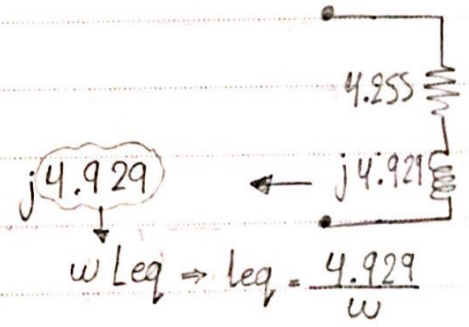 4.255
j4.929 ← j4.929
wLeq ⇒ leq = 4.929
w